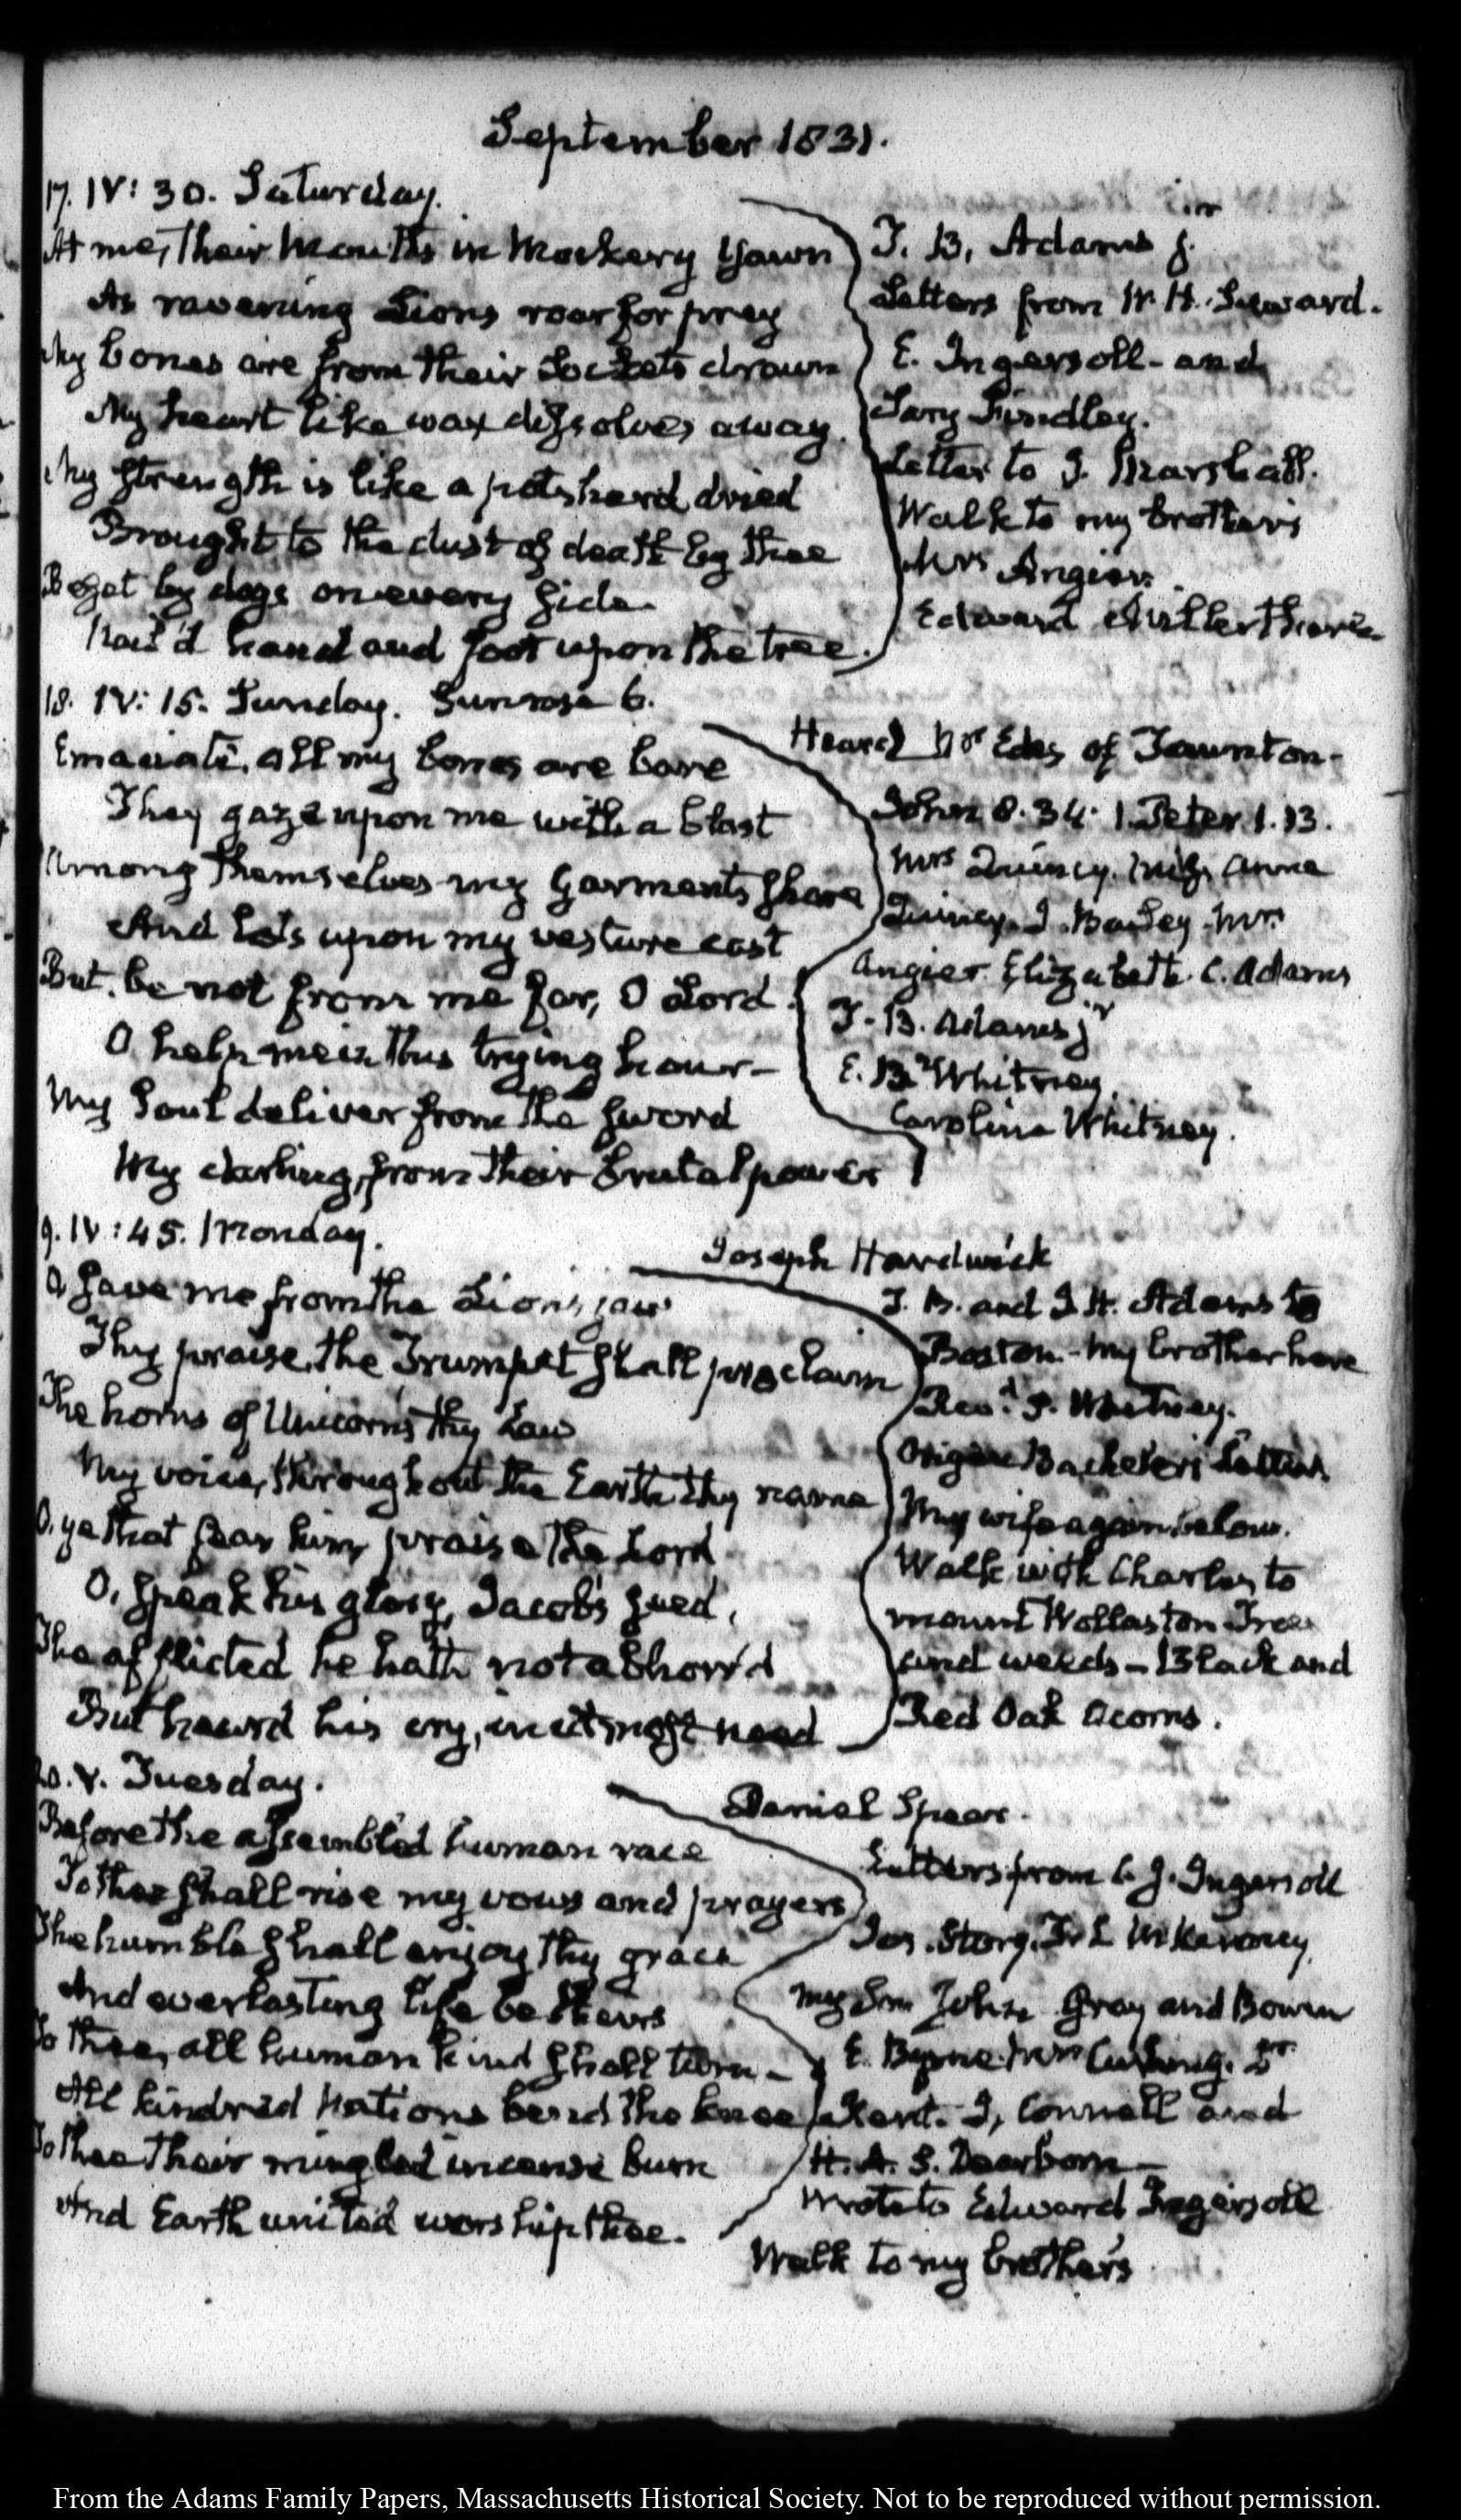 September 1831.
17. IV: 30. Saturday.
At me, their mouths in mockery yawn
As ravening Lions roar for prey
My bones are from their Sockets drawn
My heart like wax dissolves away.
My strength is like a potsherd dried
Brought to the dust of death by thee
Beset by dogs on every side.
Nail'd hand and foot upon the tree.
T. B. Adams jr.
Letters from W. H. Seward.
E. Ingersoll - and
Findley.
Letter to J. Marshall.
Walk to my brother's
Mrs Angier.
Edward Miller there
18. IV: 15. Sunday. Sun rose 6.
Emaciate, all my bones are bare
They gaze upon me with a blast
Among themselves my garments share
And lots upon my vesture cast
But, be not from me far, O Lord.
O help me in this trying hour-
My Soul deliver from the sword
My darling, from their brutal power
Heard Mr Edes of Taunton-
John 8. 34. 1. Peter 1. 13.
Mrs Quincy. Miss Anne
Quincy. J. Bailey. Mrs
Angier. Elizabeth. C. Adams
T. B. Adams jr
E. B. Whitney.
Caroline Whitney.
19. IV: 45. Monday.
O, save me from the Lion's jaw
Thy praise, the Trumpet shall proclaim
The horns of Unicorns thy Law
My voice, throughout the Earth thy name
O, ye that fear him, praise the Lord
O, speak his glory, Jacob's seed,
The afflicted he hath not abhorr'd
But heard his cry, in utmost need
Joseph Hardwick
T. B. and J. H. Adams to
Boston. My brother here
Revd. P. Whitney.
Origen Bacheler's letter
My wife again below.
Walk with Charles to
mount Wollaston Tree
and weeds - Black and
Red Oak Acorns.
20. V. Tuesday.
Before the assembled human race
To thee shall rise my vows and prayers
The humble shall enjoy thy grace
And everlasting life be theirs
To thee, all human kind shall turn -
All kindred Nations bend the knee
To thee their mingled incense burn
And Earth united worship thee.
Daniel Spear.
Letters from C. J. Ingersoll
Jas. Story. T. L McKenney
My Son John Gray and Bowen
E. Byrne. Wm Cushing. Dr.
Kent. J, Connell and
H. A. S. Dearborn -
Wrote to Edward Ingersoll
Walk to my brother's
From the Adams Family Papers, Massachusetts Historical Society. Not to be reproduced without permission.